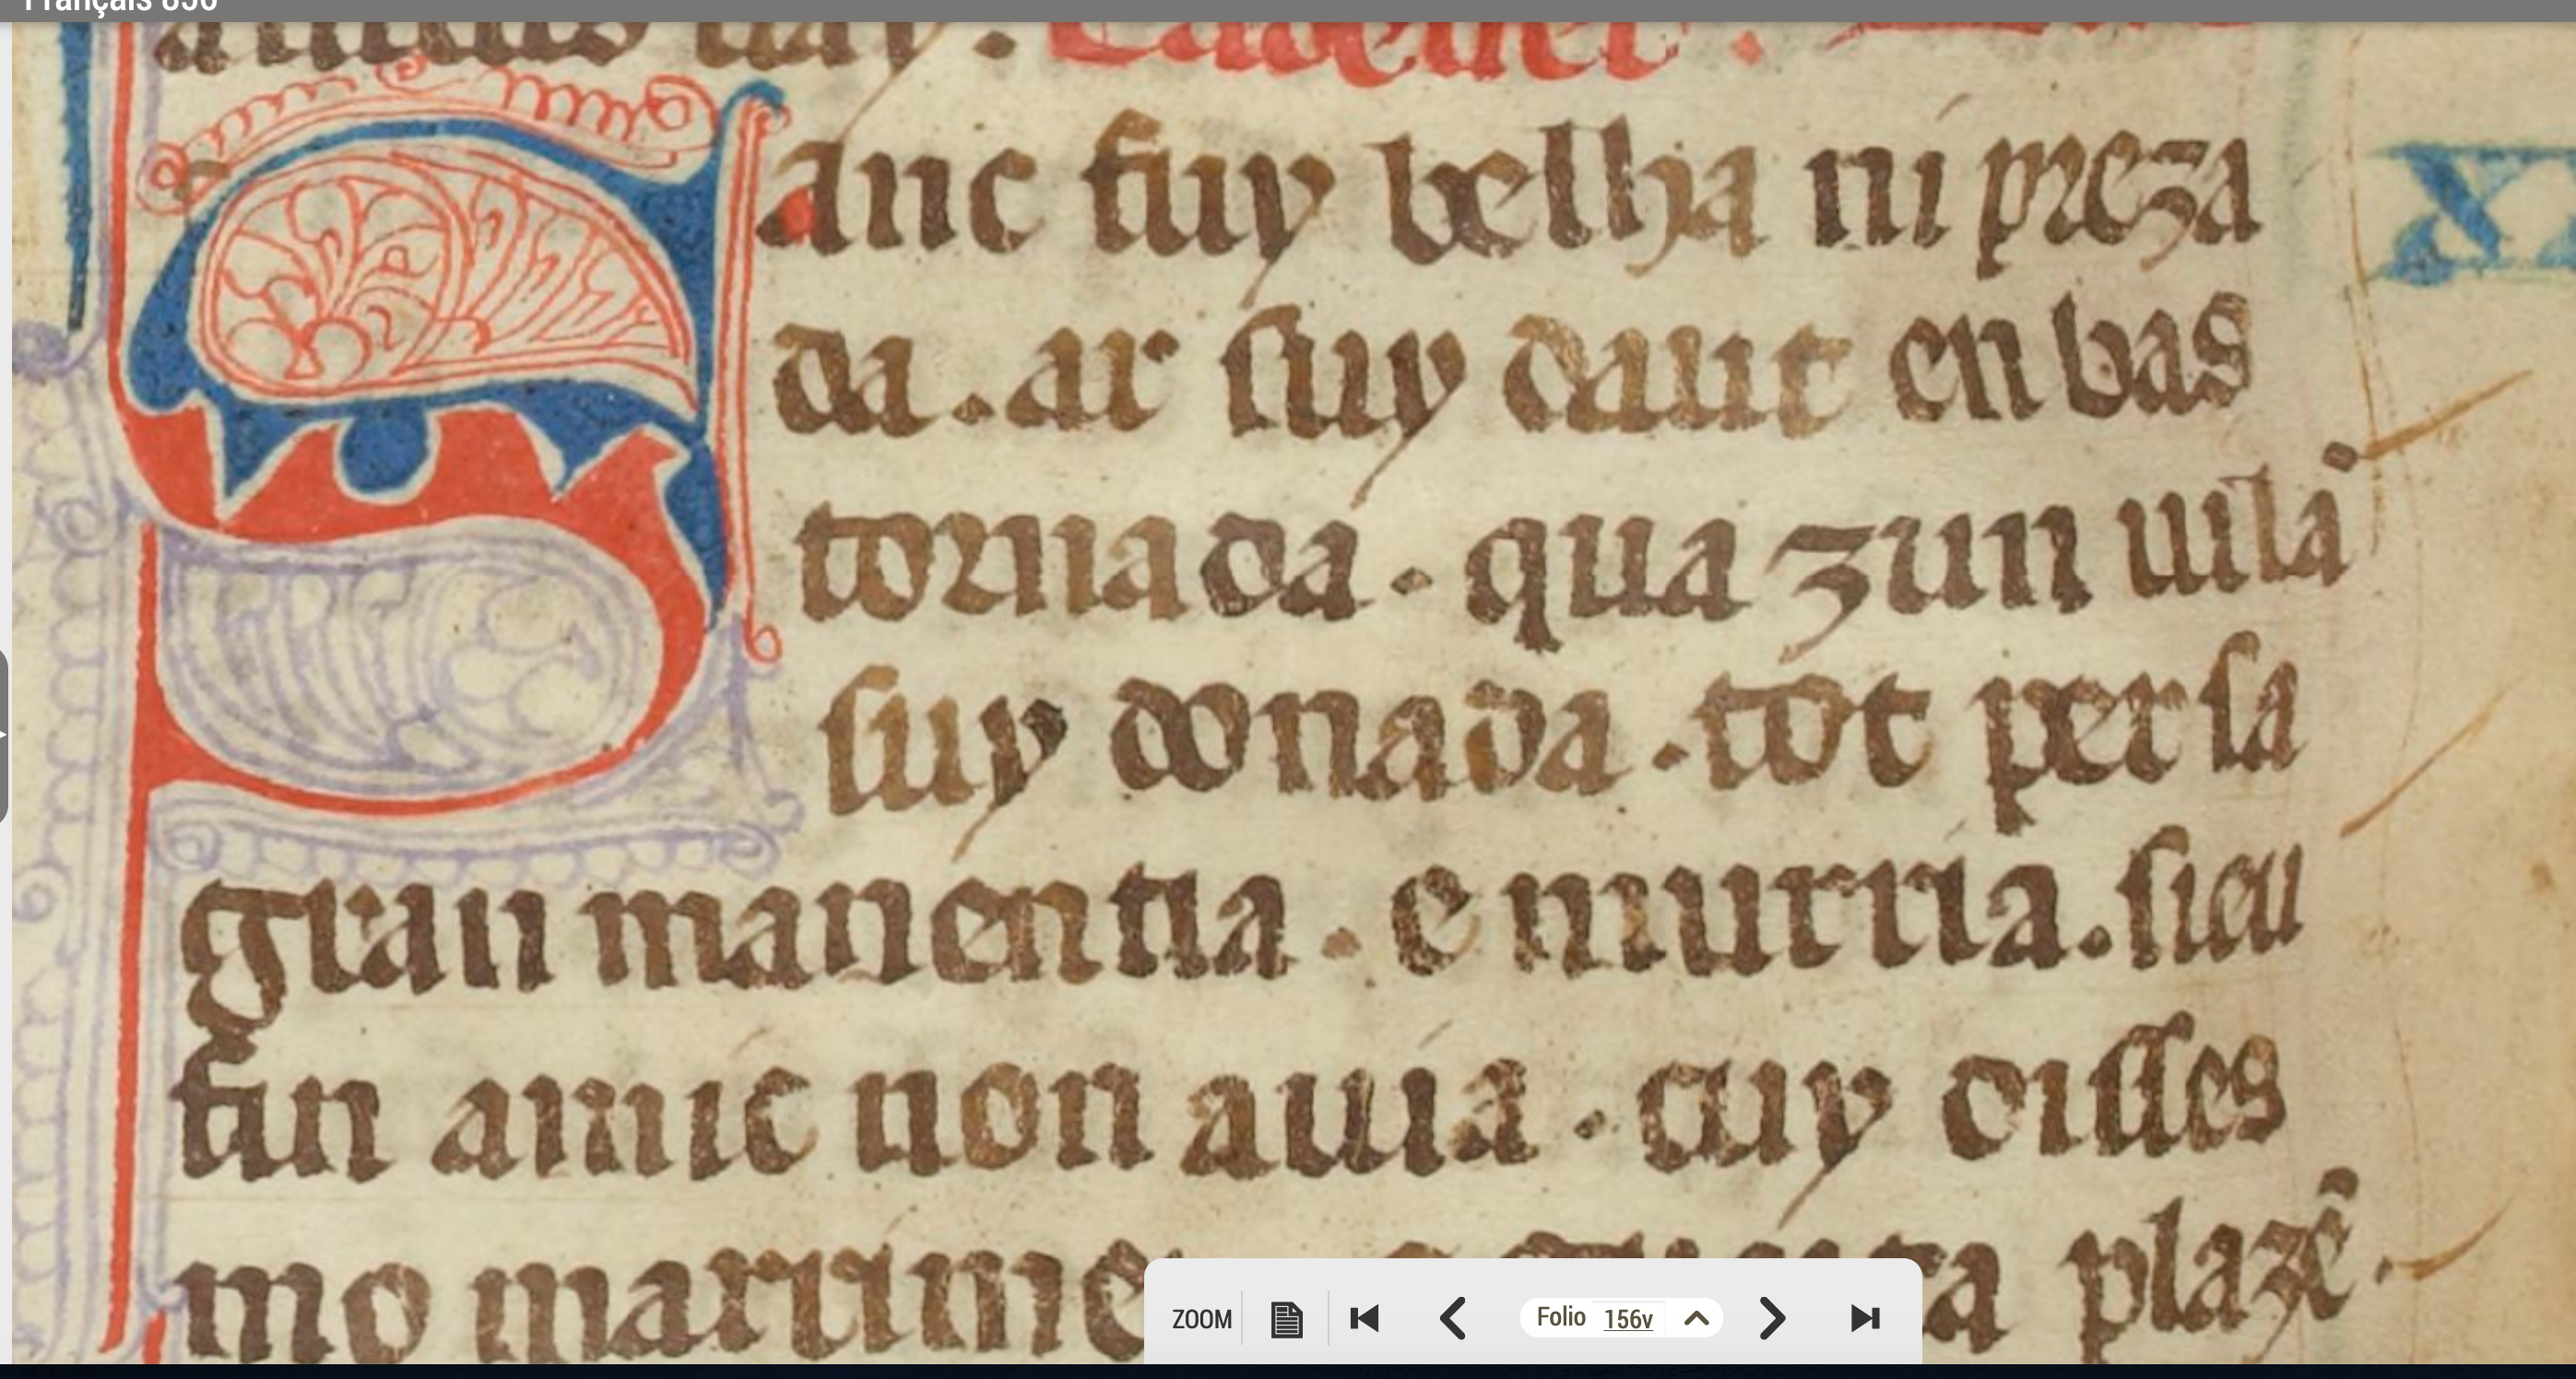 Français 856
Cadenet.
Sanc fuy belha ni preza
da. ar suy daut en bas
tornada. qua zun uilā
suy donada. tot per sa
gran manentia. e murria. sieu
fin amic non auia. cuy disses
mo marrimē
ta plazē.
ZOOM
Folio 156v